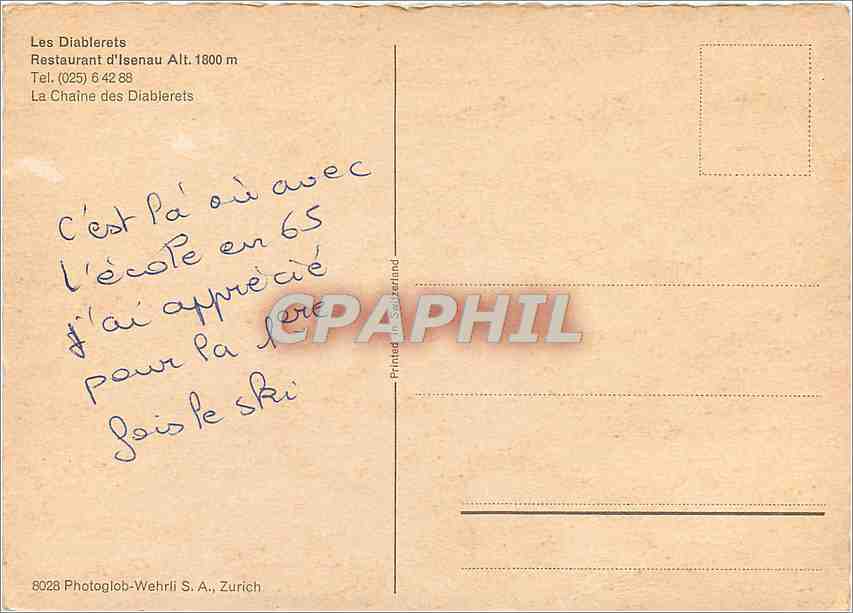 Les Diablerets
Restaurant d'Isenau Alt. 1800 m
Tel. (025) 6 42 88
La Chaîne des Diablerets
c'est là où avec
l'école en 65
j'ai apprécié
pour la 1ere
fois le ski
CPAPHIL
Printed in Switzerland
8028 Photoglob-Wehrli S. A., Zurich